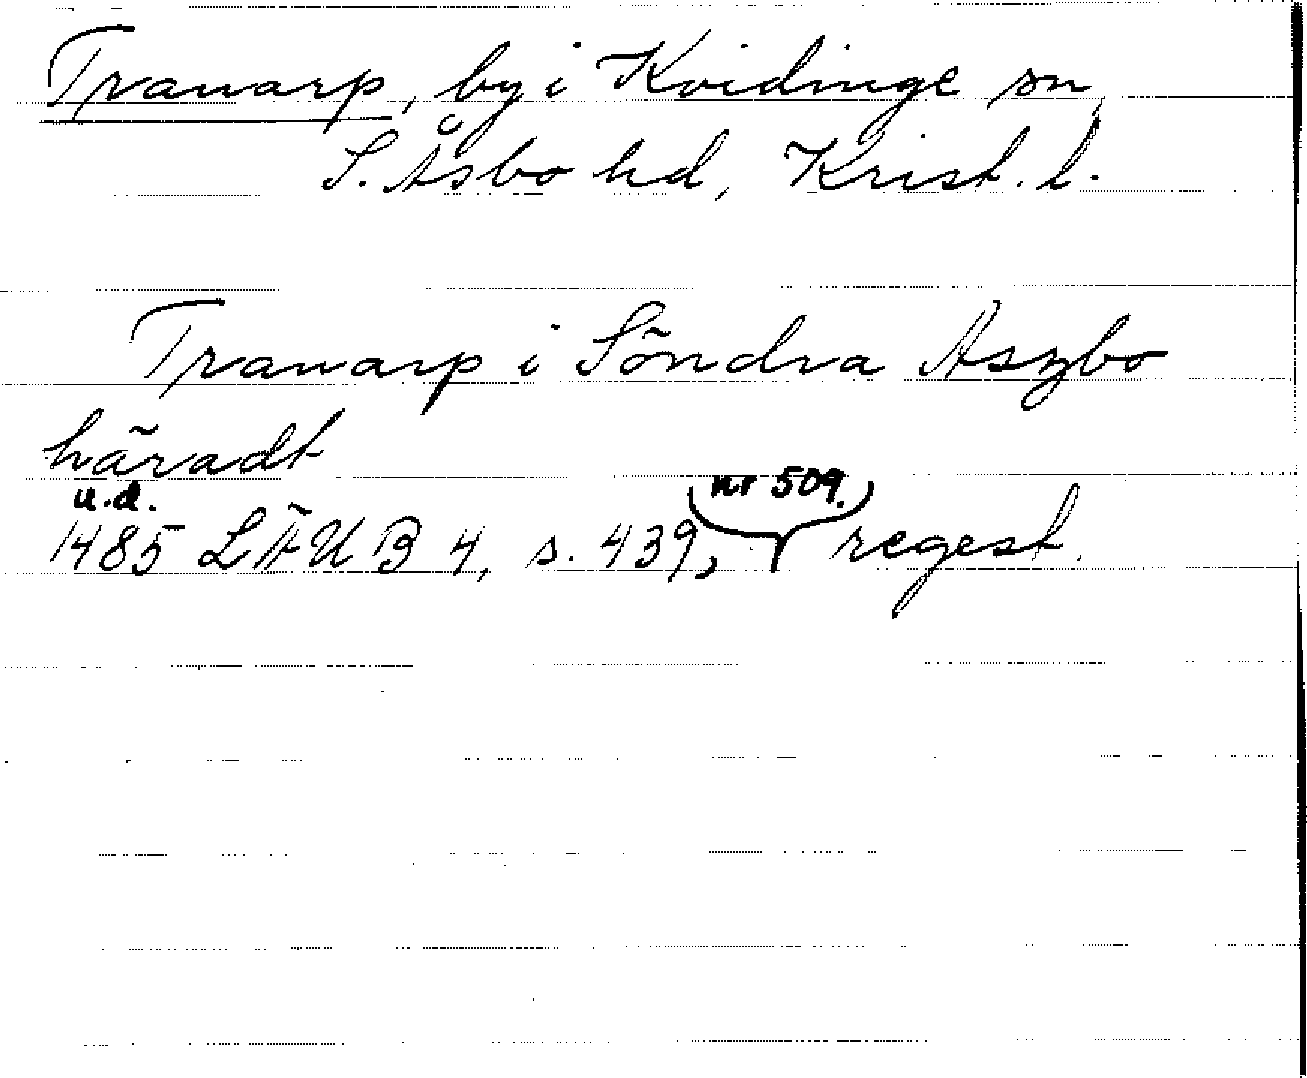 Tranarp, by i Kvidinge sn
S. Åsbo hd, Krist. l.
Tranarp i Söndra Aszbo
häradt
u.d. nr 509.
1485 LÄUB 4, s. 439, regest.